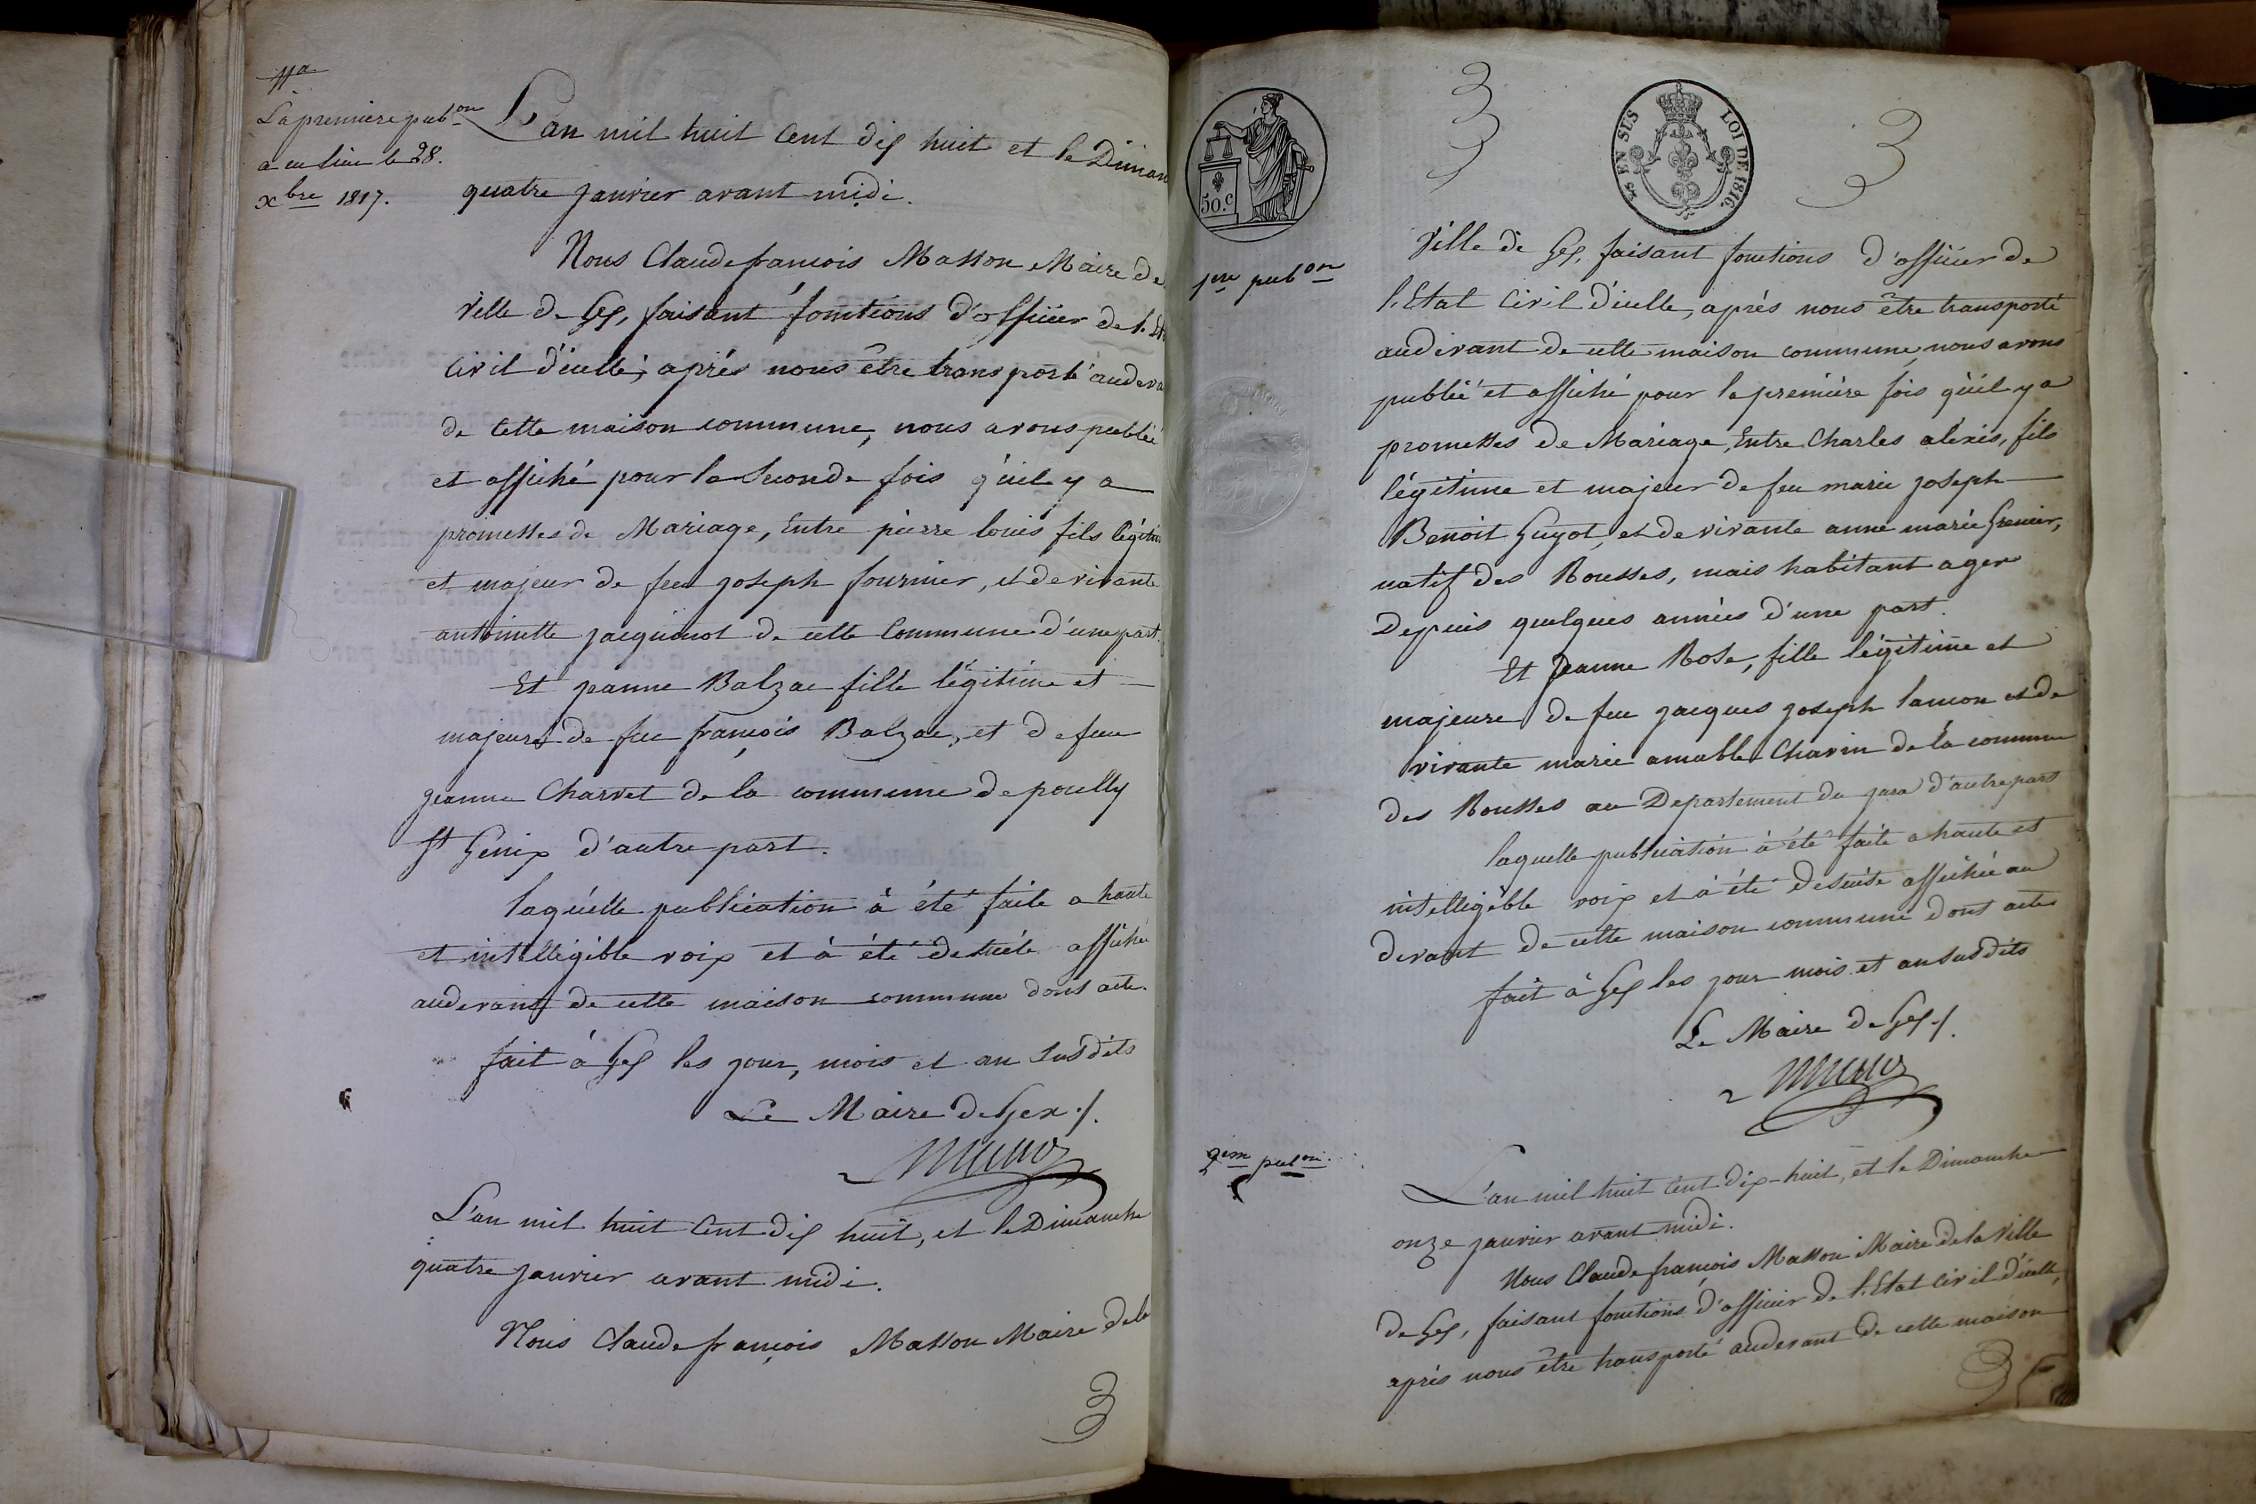 La premiere pub.on
a eu lieu le 28.
xbre 1817.
L'an mil huit cent dix huit et le Diman
quatre janvier avant midi.
Nous Claude françois Masson Maire de
ville de Gex, faisant fonctions d'officier de l'Et
civil d'icelle, après nous être transporté audeva
de cette maison commune, nous avons publié
et affiché pour la seconde fois qu'il y a
promesses de Mariage, Entre pierre louis fils légitim
et majeur de feu joseph fournier, et de vivante
antoinette jacquinot de cette Commune d'une part.
Et jeanne Balzac fille légitime et
majeure de feu françois Balzac, et de feue
jeanne Charvet de la commune de pouilly
St Genix d'autre part.
laquelle publication à été faite a haute
et intelligible voix et à été desuite affichée
audevant de cette maison commune dont acte.
fait à Gex les jour, mois et an susdits
Le Maire de Gex ./.
L'an mil huit cent dix huit, et le Dimanche
quatre janvier avant midi.
Nous Claude françois Masson Maire dela
3
50.c
3
3
3
3
EN SUS
LOI DE 1816.
1re pub.on
Ville de Gex, faisant fonctions d'officier de
l'Etat civil d'icelle, après nous être transporté
audevant de cette maison commune nous avons
publié et affiché pour la première fois qu'il y a
promesses de Mariage, Entre Charles aléxis, fils
légitime et majeur de feu marie joseph
Benoit Guyot, et de vivante anne marie Grenier,
natif des Rousses, mais habitant a gex
Depuis quelques années d'une part.
Et Jeanne Rose, fille légitime et
majeure de feu jacques joseph lamon et de
vivante marie amable Chavin de la commune
des Rousses au Departement du jura d'autre part
laquelle publication à été faite a haute et
intelligible voix et à été desuite affichée au
devant de cette maison commune dont acte
fait à Gex les jour mois et an susdits
Le Maire de Gex ./.
2em pub.on
L'an mil huit cent dix-huit, et le Dimanche
onze janvier avant midi.
Nous Claude françois Masson Maire de la Ville
de Gex, faisant fonctions d'officier de l'Etat civil d'icelle,
après nous être transporté audevant de cette maison
3